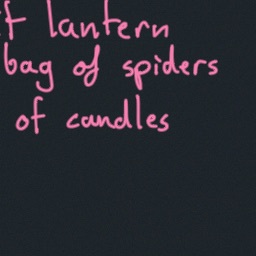 lantern
bag of spiders
of candles